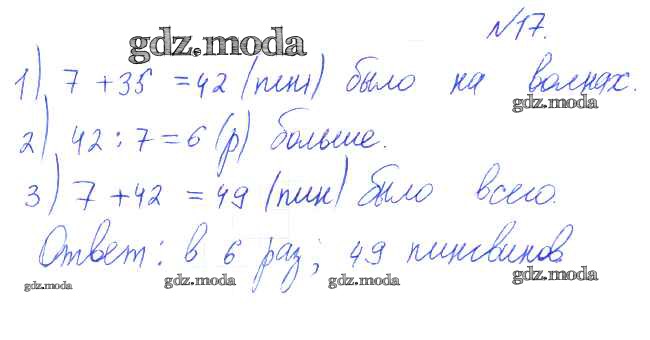 №17.
gdz.moda
1) 7 + 35 = 42 (пин) было на волнах.
gdz.moda
2) 42 : 7 = 6 (р) больше.
3) 7 + 42 = 49 (пин) было всего.
gdz.moda
Ответ: в 6 раз; 49 пингвинов
gdz.moda gdz.moda gdz.moda gdz.moda